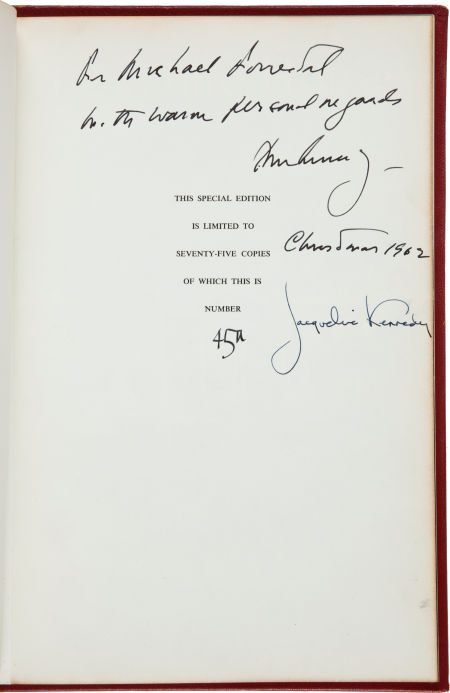 For Michael Forrestal
with warm personal regards
Christmas 1962
THIS SPECIAL EDITION
IS LIMITED TO
SEVENTY-FIVE COPIES
OF WHICH THIS IS
NUMBER
45th
Jacqueline Kennedy